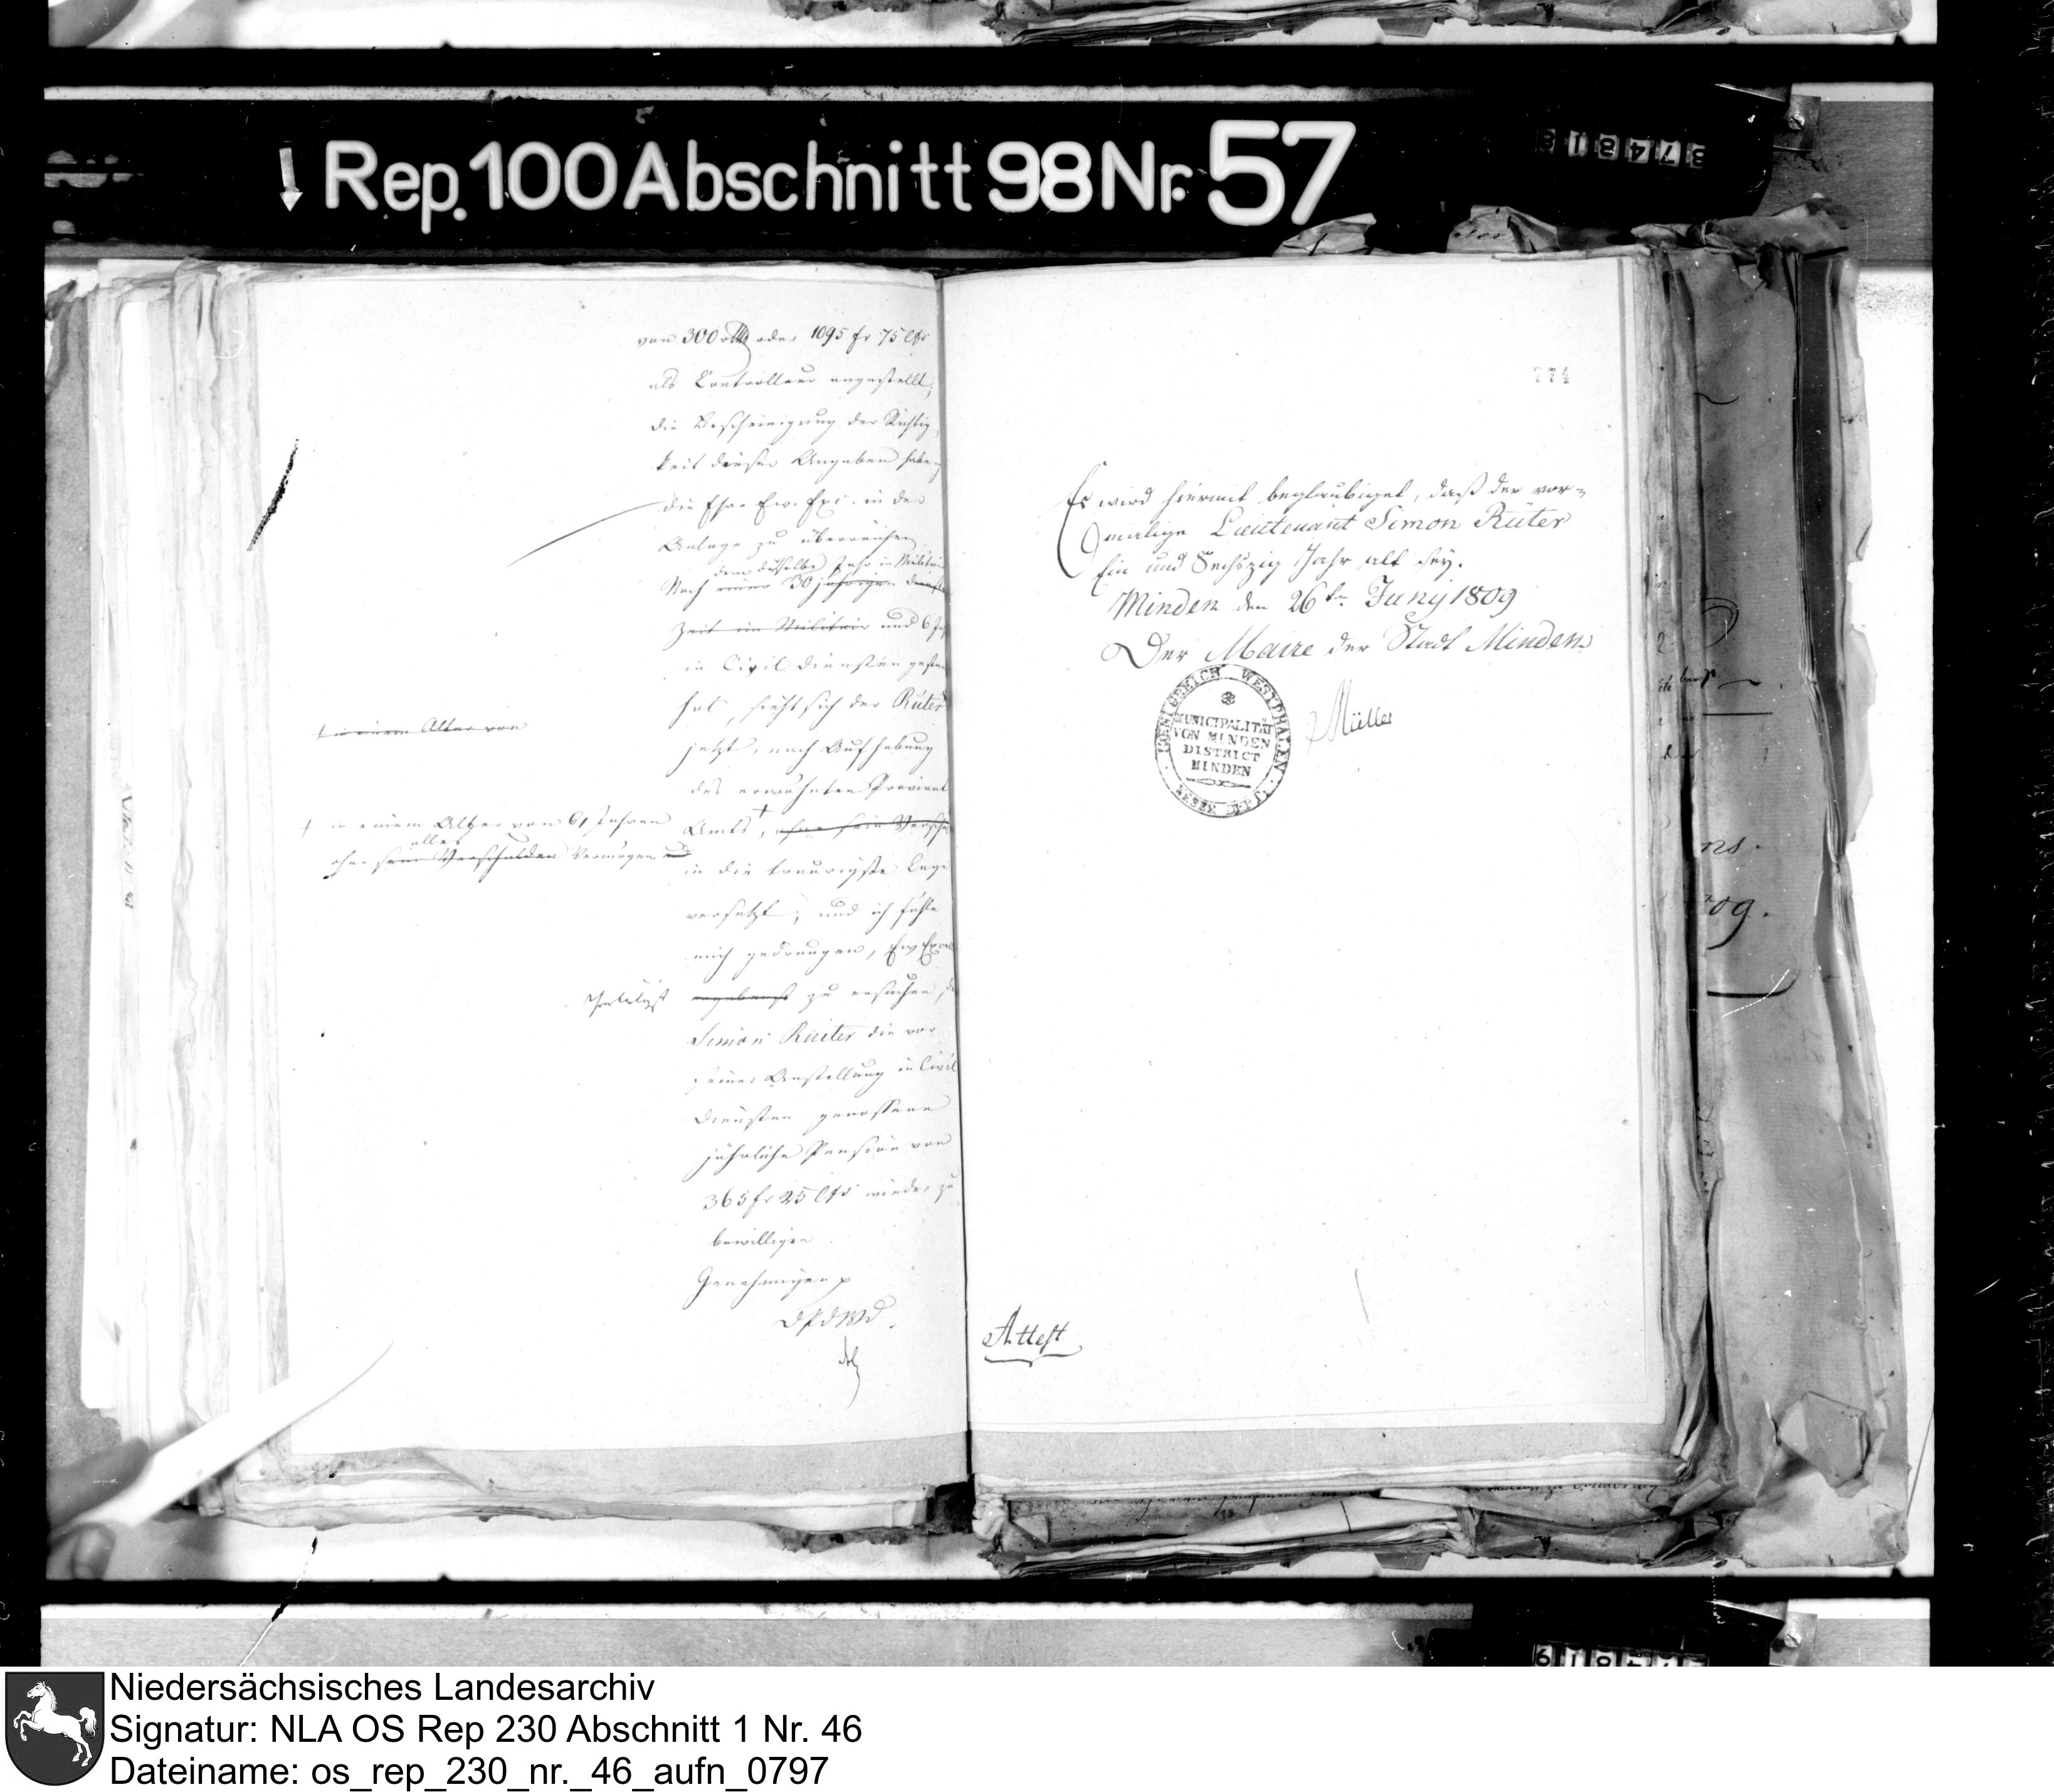 Rep. 100 Abschnitt 98 Nr. 57
374818
von 300 rthlr oder 1095 fr 75 Cts
als Controlleur angestellt,
die Bescheinigung der Richtig
keit dieser Angaben habe
die Ehre Ew. Exc. in der
Anlage zu überreichen
dem derselbe Jahr in Militair
Nach einer 30 jährigen Dienst
Zeit im Militair und 6
in Civil diensten
hat, sieht sich der Rüter
jetzt, nach Aufhebung
des erwähnten Proviant
Amts, ohne sein
in die traurigste Lage
versetzt, und ich fühle
mich gedrungen, Ew Exc
ergebenst zu ersuchen,
Simon Rüter die vor
seiner Anstellung in Civil
Diensten genossene
jährliche Pension von
365 fr 25 Cts wieder zu
bewilligen
Genehmigen p
D P d W D.
† in einem Alter von
† in einem Alter von 61 Jahren
alles
ohne sein Verschulden Vermögen
774
Es wird hiermit beglaubiget, daß der vor-
malige Lieutenant Simon Rüter
Ein und Sechszig Jahr alt sey.
Minden den 26ten Juny 1809
Der Maire der Stadt Minden
Müller
KOENIGREICH WESTPHALEN
MUNICIPALITÄT
VON MINDEN
DISTRICT
MINDEN
WESER DEPT.
Attest
Niedersächsisches Landesarchiv
Signatur: NLA OS Rep 230 Abschnitt 1 Nr. 46
Dateiname: os_rep_230_nr._46_aufn_0797